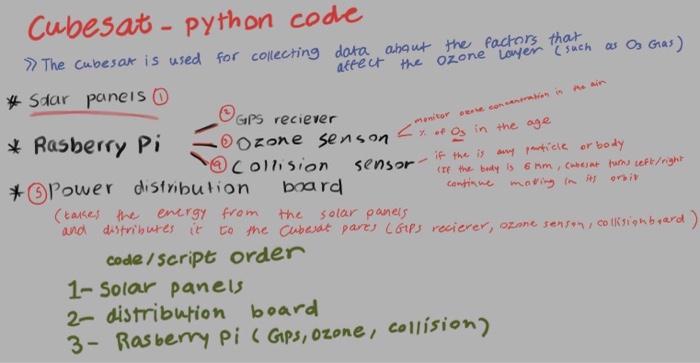 Cubesat - python code
>> The cubesat is used for collecting data about the factors that
affect the ozone layer (such as O3 Gas)
* Solar panels ①
② GPS reciever
* Rasberry Pi
③ Ozone senson
monitor ozone concentration in the air
% of O3 in the age
④ Collision sensor
if the is any particle or body
(If the body is 6 mm, Cubesat turns left/right
continue moving in its orbit
* ⑤ Power distribution board
(takes the energy from the solar panels
and distributes it to the Cubesat parts (GPS reciever, ozone senson, collisionboard)
code/script order
1- Solar panels
2- distribution board
3- Rasberry Pi (GPS, Ozone, collision)